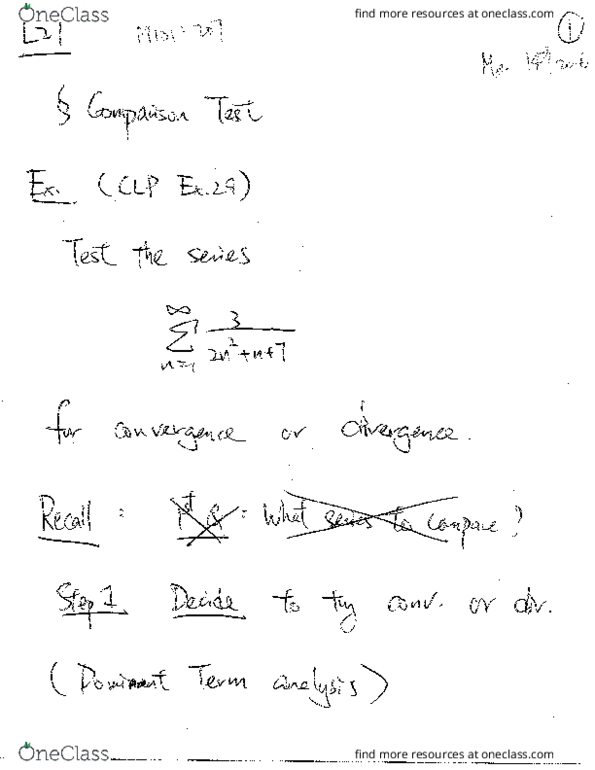 OneClass
find more resources at oneclass.com
L21
1
§ Comparison Test
Ex. (CLP Ex.29)
Test the series
∞
∑ 3 / 2n²+n+7
n=1
for convergence or divergence.
Recall : 1st Q : What series to compare?
Step 1 Decide to try conv. or div.
(Dominant Term analysis)
OneClass
find more resources at oneclass.com